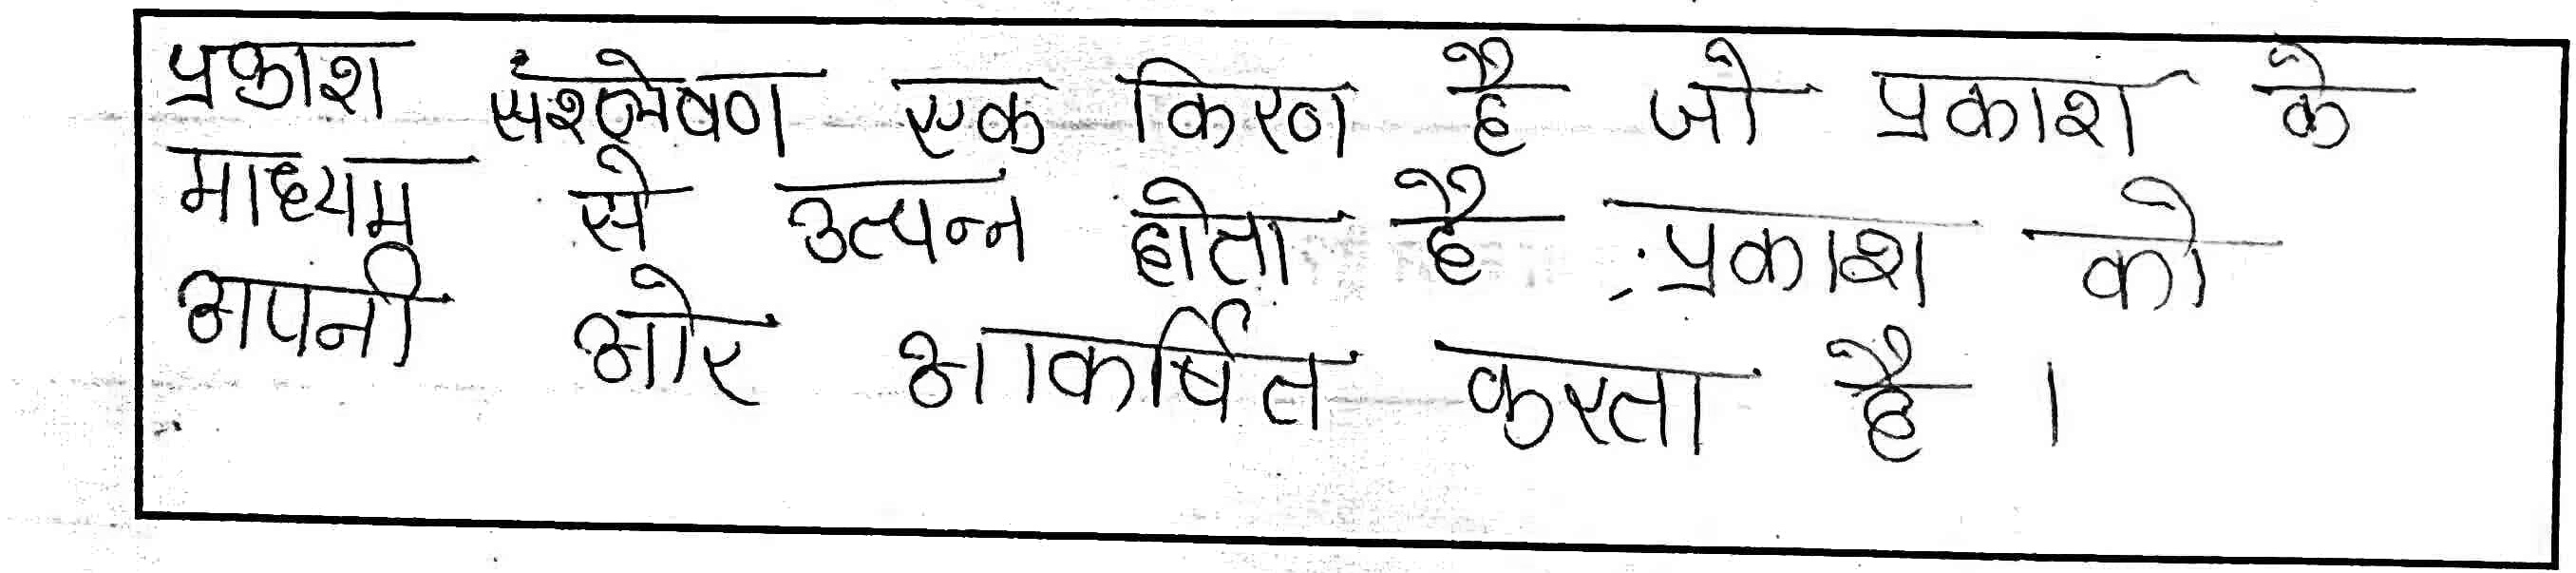 प्रकाश संश्लेषण एक किरण है जो प्रकाश के
माध्यम से उत्पन्न होता है प्रकाश को
अपनी ओर आकर्षित करता है ।